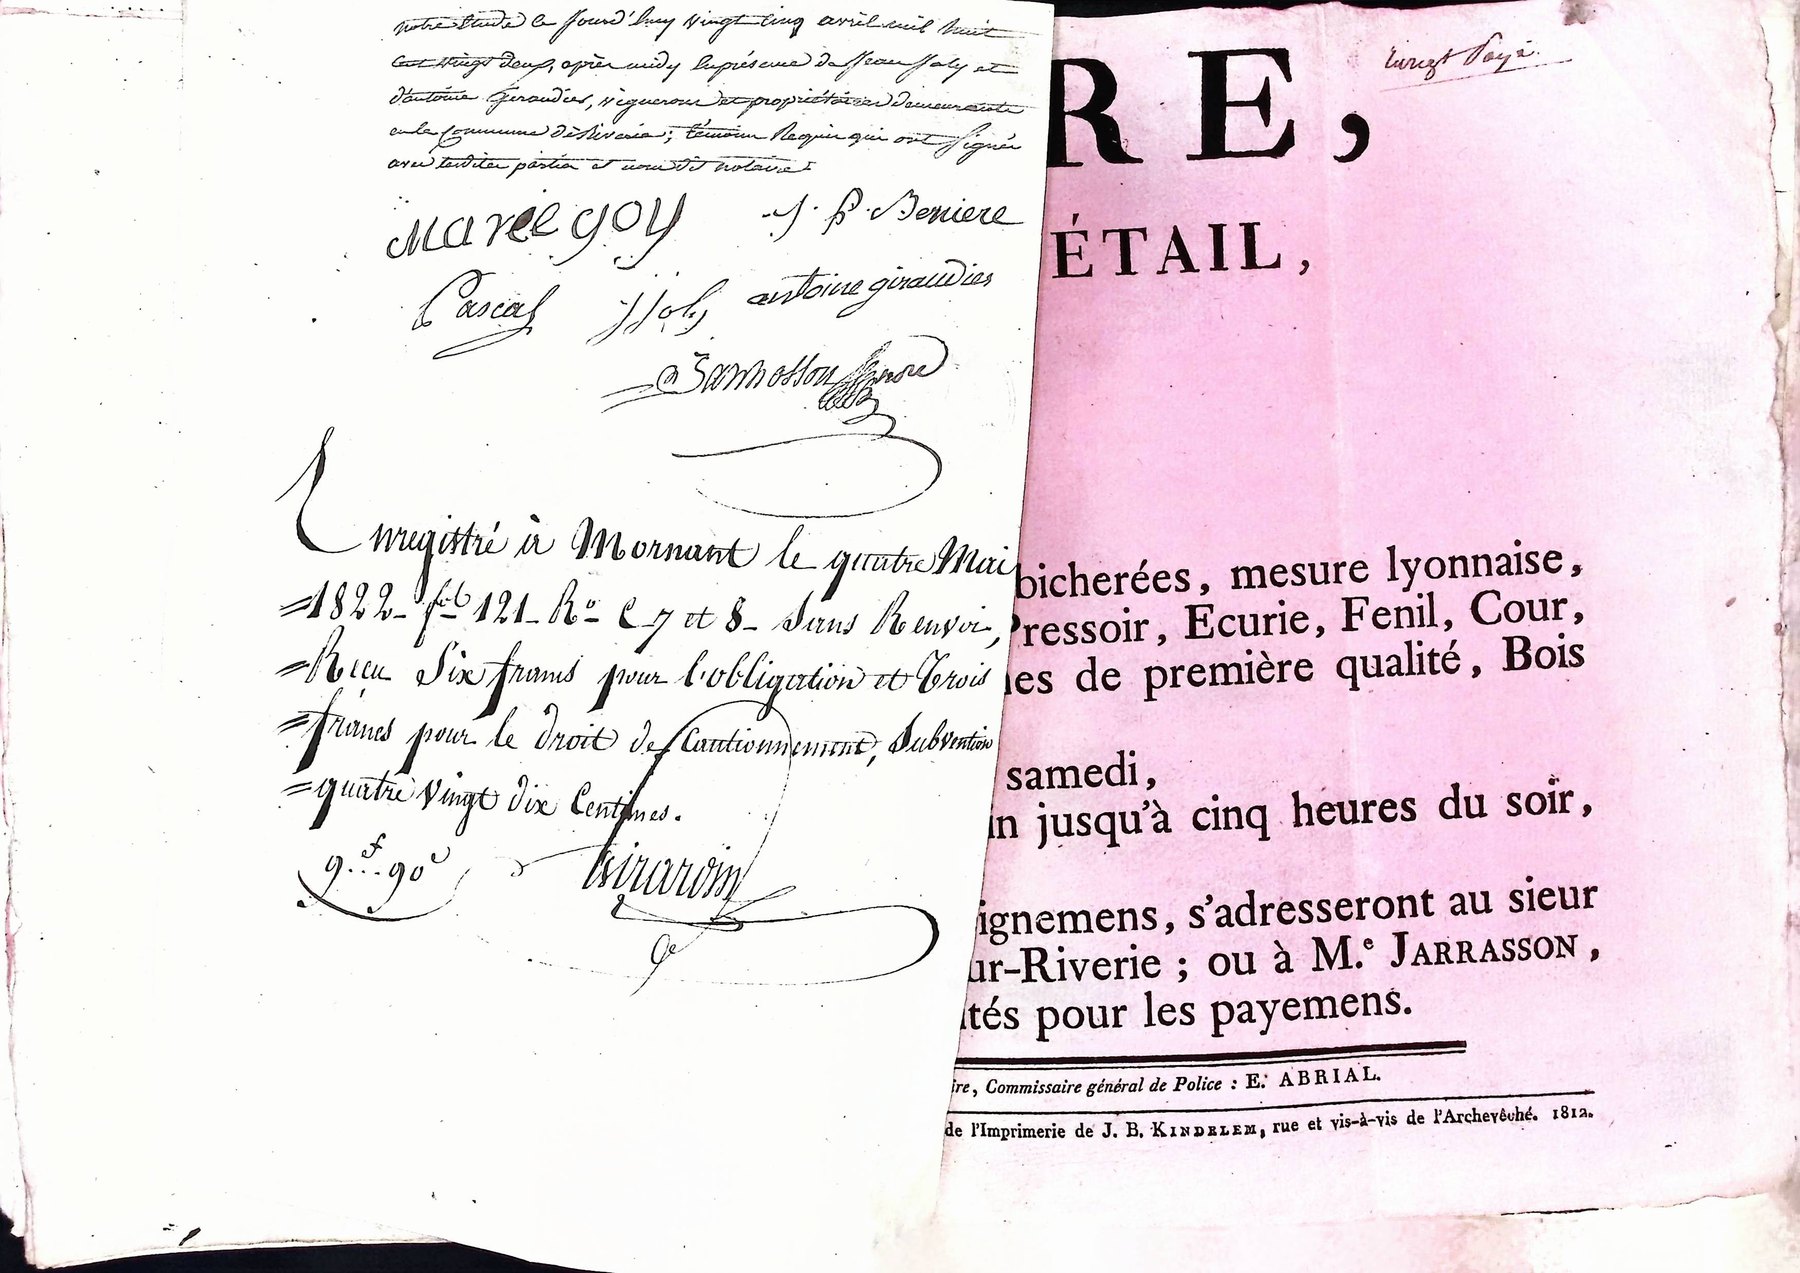 notre étude le jourd'huy vingt cinq avril mil huit
cent vingt deux, après midy en présence de Jean Joly et
d'antoine Giraudier, vignerons et propriétaires demeurants
en la Commune de Riverie; témoins Requis qui ont Signés
avec lesdites parties et nous dit notaire
Marie goy J. P. Beniere
Pascal J Joly antoine giraudier
Jarrosson
Enregistré à Mornant le quatre Mai
1822 - fol 121 - Ro C 7 et 8 - Sans Renvoi,
Recu Six francs pour l'obligation et Trois
francs pour le droit de Cautionnement, Subvention
quatre vingt dix Centimes.
9f...90c
Girardin
RE,
ÉTAIL,
bicherées, mesure lyonnaise,
Pressoir, Ecurie, Fenil, Cour,
es de première qualité, Bois
samedi,
in jusqu'à cinq heures du soir,
ignemens, s'adresseront au sieur
ur-Riverie ; ou à M.e JARRASSON,
ités pour les payemens.
ire, Commissaire général de Police : E. ABRIAL.
de l'Imprimerie de J. B. KINDELEM, rue et vis-à-vis de l'Archevêché. 1812.